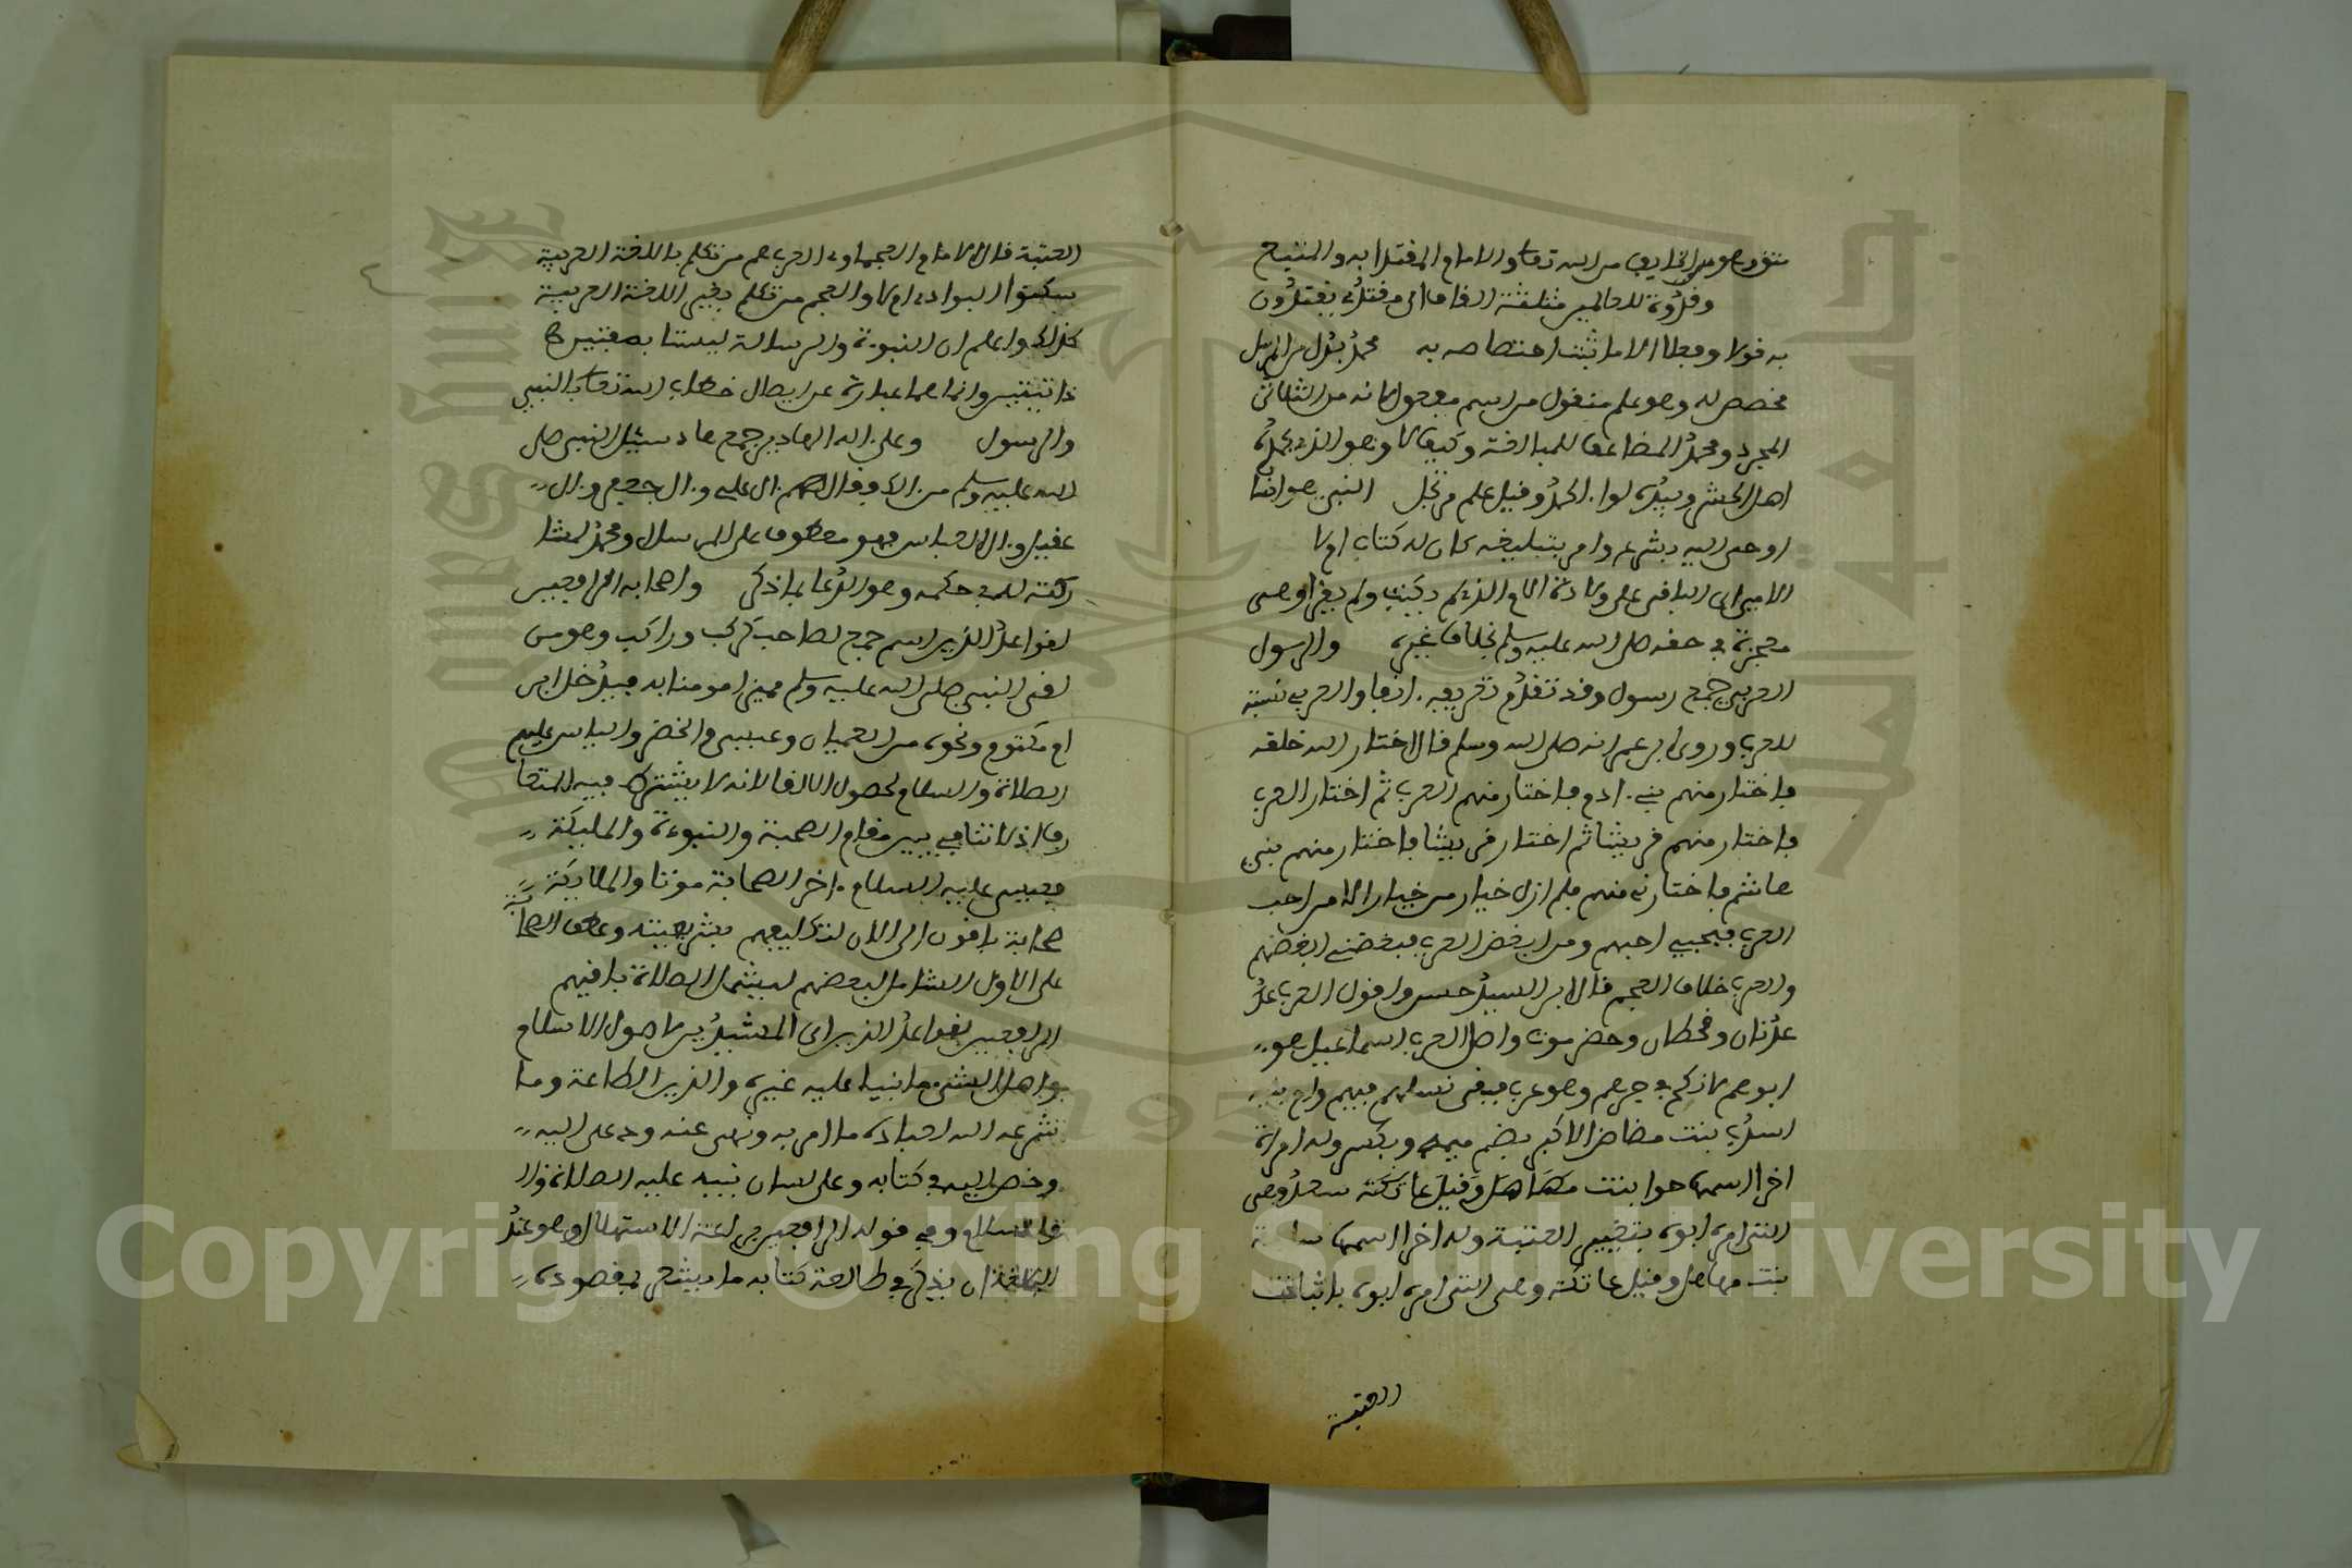 وقدوة للعالمين مثلثة القاف اي مقتدى يقتدون
به قولا وفعلا الا ما ثبت اختصاصه به محمد بدل من المرسل
مخصص له وهو علم منقول من اسم مفعول لانه من الثلاثي
المجرد ومحمد المضاعف للمبالغة وكيف لا وهو الذي يحمده
اهل المحشر وبيده لواء الحمد وقيل علم مرتجل النبي هو انسان
اوحى اليه بشرع وامر بتبليغه كان له كتاب اولا
الامي اي الباقي على ولادة الام الذي لم يكتب ولم يقرا وهي
معجزة في حقه صلى الله عليه وسلم بخلاف غيره والرسول
العربي جمع رسول وقد تقدم تعريفه انفا والعربي نسبة
للعرب وروى ابن عمر انه صلى الله وسلم قال اختار الله خلقه
فاختار منهم بني ادم فاختار منهم العرب ثم اختار العرب
فاختار منهم قريشا ثم اختار قريشا فاختار منهم بني
هاشم فاختارني منهم فلم ازل خيار من خيار الا من احب
العرب فبحبي احبهم ومن ابغض العرب فببغضي ابغضهم
والعرب خلاف العجم قال ابن السيد حسن واقول العرب عد
عدنان وقحطان وحضرموت واصل العرب اسماعيل هو
ابوهم لانزكح في جرهم وهو عرب فبقي نسلهم فيهم وام بنيه
اسد بنت مضاض الاكبر بضم ميمه وبكسر وله امراة
اخرا اسمها حوا بنت مهاهل وقيل عاتكة سعد وهي
التي امره ابوه بتغيير العتبة وله اخرا اسمها سامة
بنت مهاهل وقيل عاتكة وهي التي امره ابوه باثبات
العتبة
العتبة قال الامام العجماوي العرب هم من تكلم باللغة العربية
سكنوا البوادي اولا والعجم من تكلم بغير اللغة العربية
كذلك واعلم ان النبوة والرسالة ليستا بصفتين
ذاتيتين وانما هما عبارة عن ايصال خطاب الله تعالى النبي
والرسول وعلى اله الهادين جمع هاد سئل النبي صلى
الله عليه وسلم من الك وقال هم ال علي وال جعفر وال
عقيل وال العباس فهو معطوف على المرسل ومحمد لمشا
ركته له في حكمه وهو الدعا بما ذكر واصحابه الرافعين
لقواعد الدين اسم جمع لصاحب كركب وراكب وهو من
لقي النبي صلى الله عليه وسلم مميزا مومنا به فيدخل ابن
ام مكتوم ونحوه من العميان وعيسى والخضر والياس عليهم
الصلاة والسلام لحصول اللقا لانه لا يشترط فيه المتعا
رف اذ لا تنافي بين مقام الصحبة والنبوة والمليكة
فعيسى عليه السلام اخر الصحابة موتا والملايكة
صحابة باقون الى الان لتكليفهم بشريعته وعطف الصحابة
على الاول الشامل لبعضهم ليشمل الصلاة باقيهم
الرافعين لقواعد الدين اي المشيدين لاصول الاسلام
واهل الشي ما انبنا عليه غيره والدين الطاعة وما
شرعه الله لعباده مما امر به ونهى عنه ودعى اليه
وخص اليه في كتابه وعلى لسان نبيه عليه الصلاة وا
السلام وفي قوله الرافعين براعة الاستهلال وهو عند
البلغا ان يذكر في طالعة كتابه ما يشعر بمقصوده
Copyright © King Saud University
1957